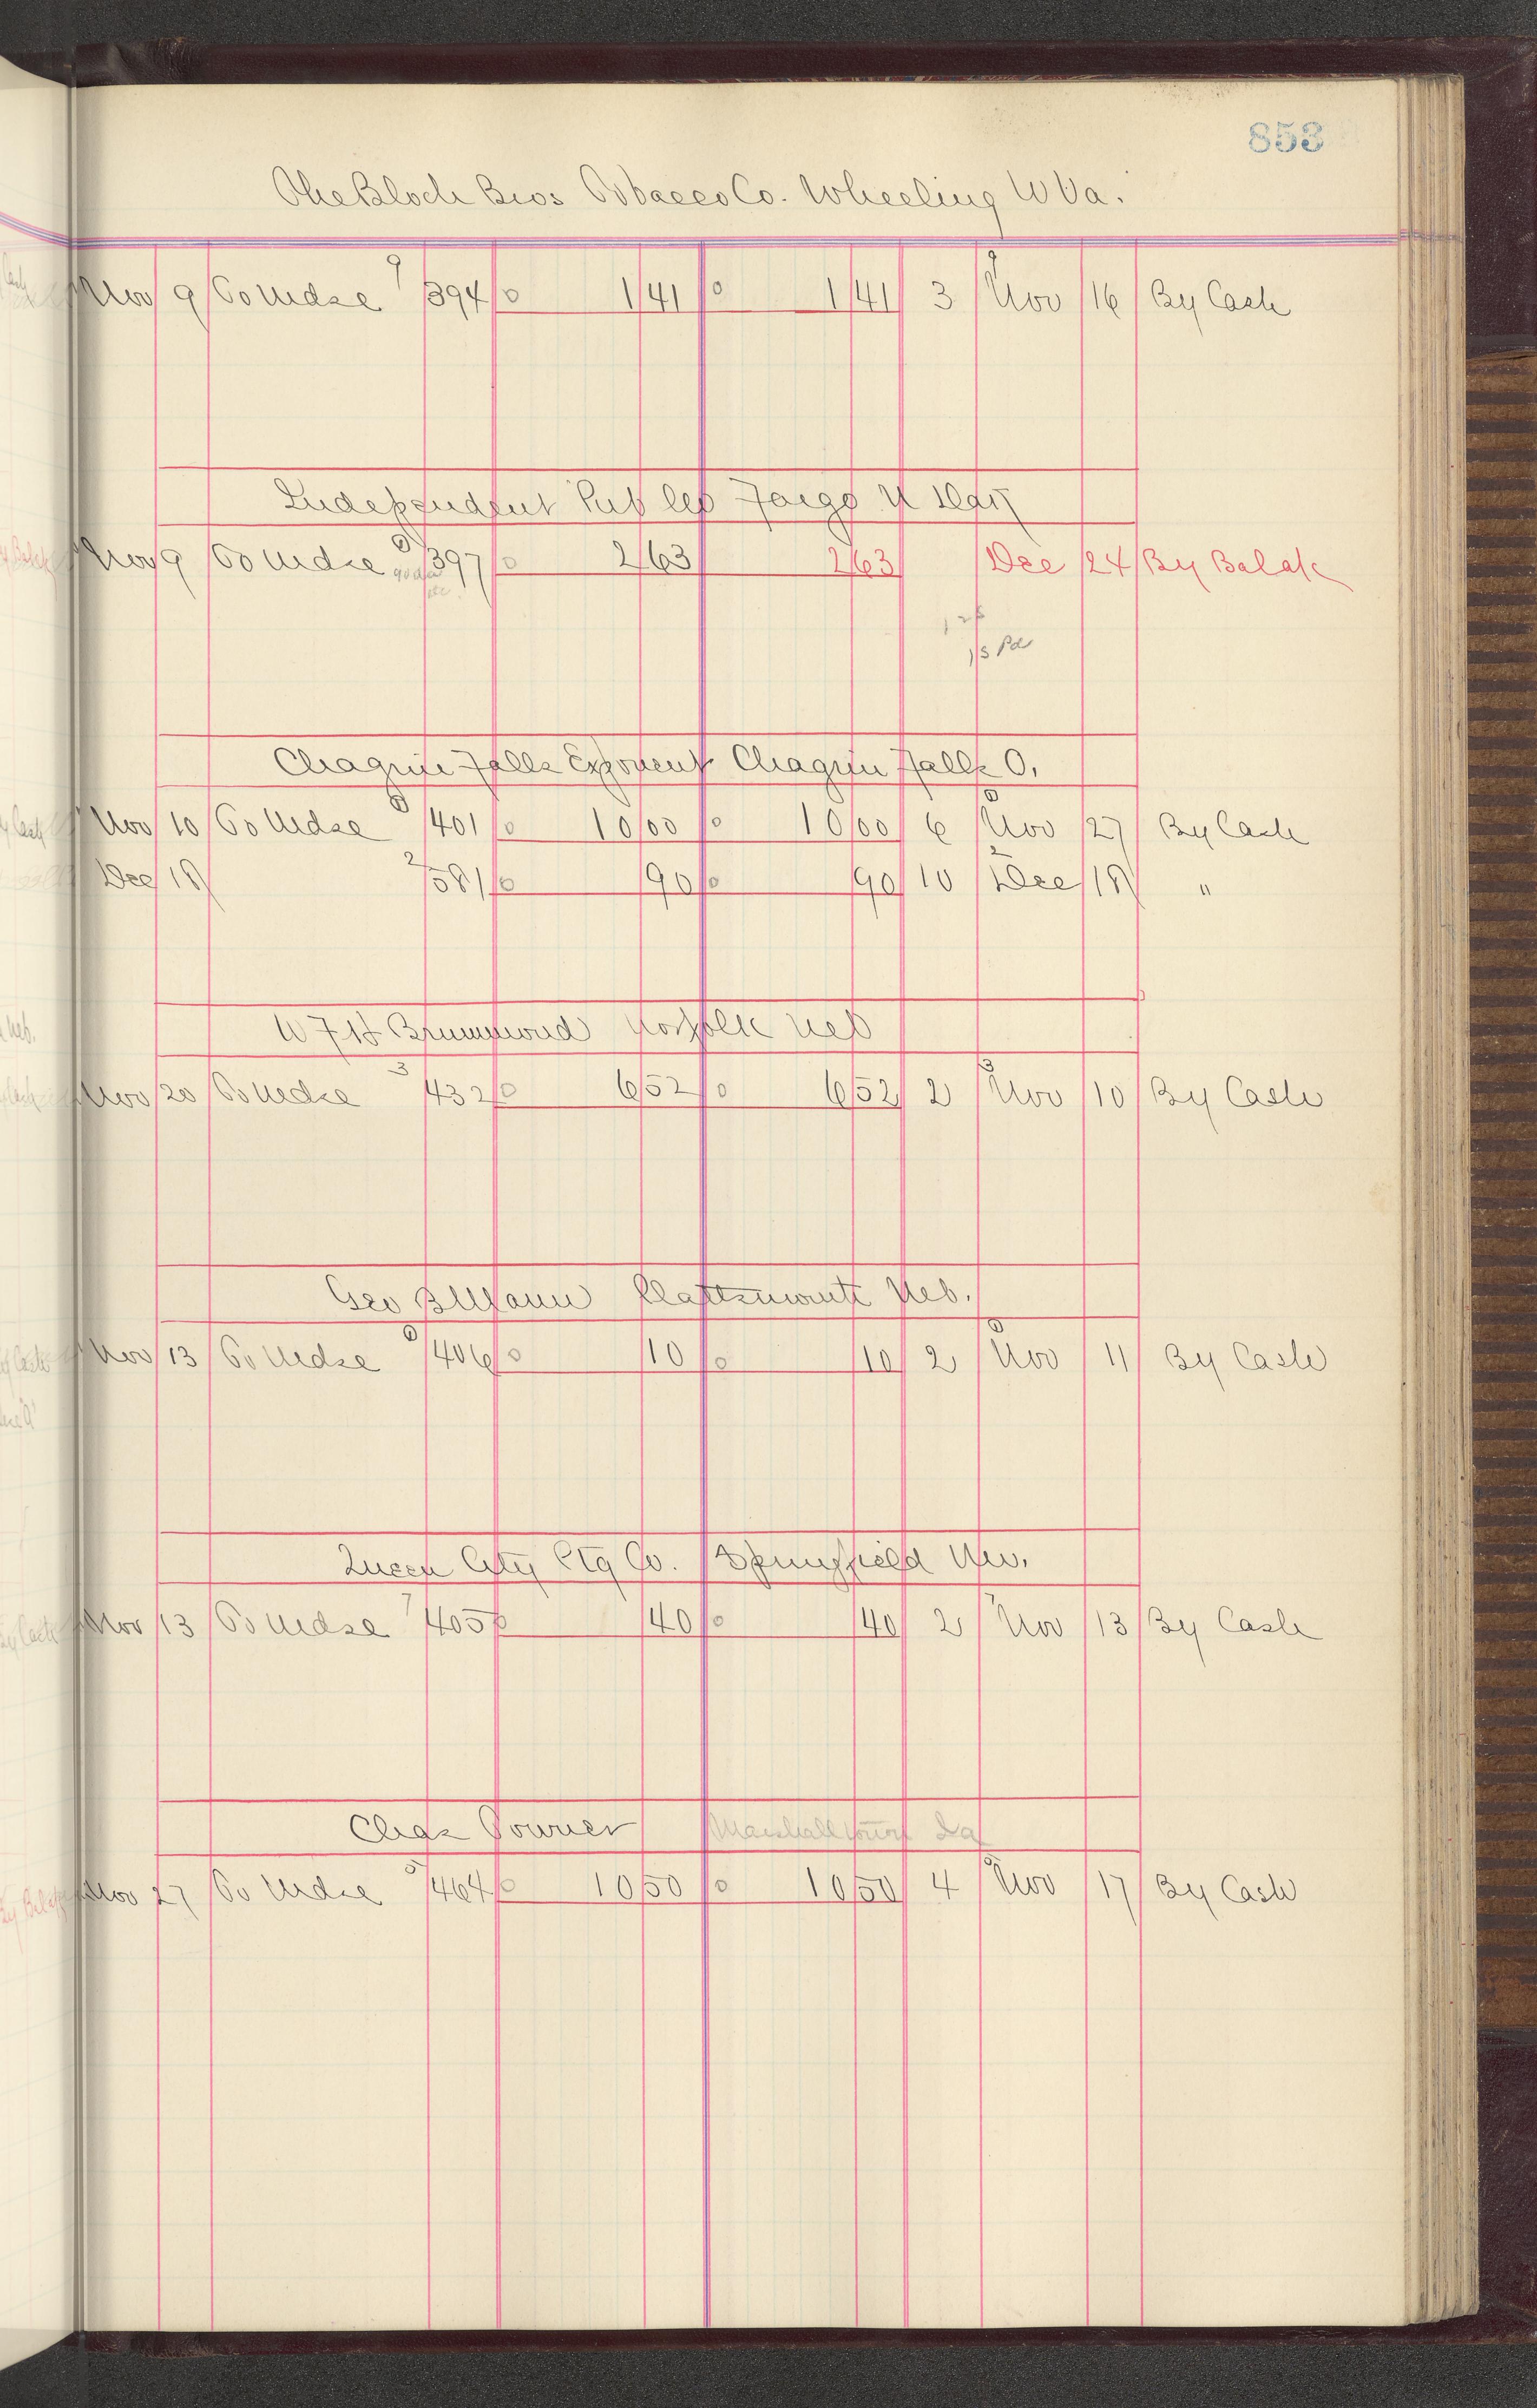 853
The Bloch Bros Tobacco Co. Wheeling W Va.
Nov 9 To Mdse 9 394 0 1 41 0 1 41 3 9 Nov 16 By Cash
Independent Pub Co Fargo N Dak
Nov 9 To Mdse 1 397 0 2 63 2 63 Dec 24 By Balak
1 25
15 Pd
Chagrin Falls Exponent Chagrin Falls O.
Nov 10 To Mdse 1 401 0 10 00 0 10 00 6 1 Nov 27 By Cash
Dec 18 2 581 0 90 0 90 10 2 Dec 18 "
W F H Brummond Norfolk Neb
Nov 20 To Mdse 3 432 0 6 52 0 6 52 2 3 Nov 10 By Cash
Geo B Mann Plattsmouth Neb.
Nov 13 To Mdse 1 406 0 10 0 10 2 1 Nov 11 By Cash
Queen City Ptg Co. Springfield
Nov 13 To Mdse 7 405 0 40 0 40 2 7 Nov 13 By Cash
Chas Powner Marshalltown Ia
Nov 27 To Mdse 5 464 0 10 50 0 10 50 4 5 Nov 17 By Cash